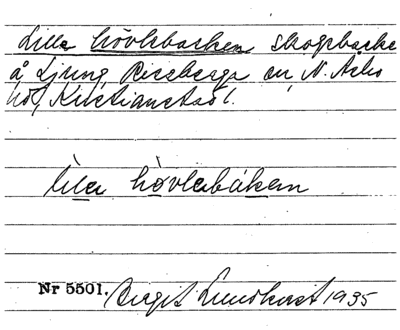 Lilla hövlabacken skogsbacke
å Ljung Riseberga sn N. Åsbo
hd, Kristianstads l.
lila hövlabákan
Nr 5501. Birgit Lundkvist 1935